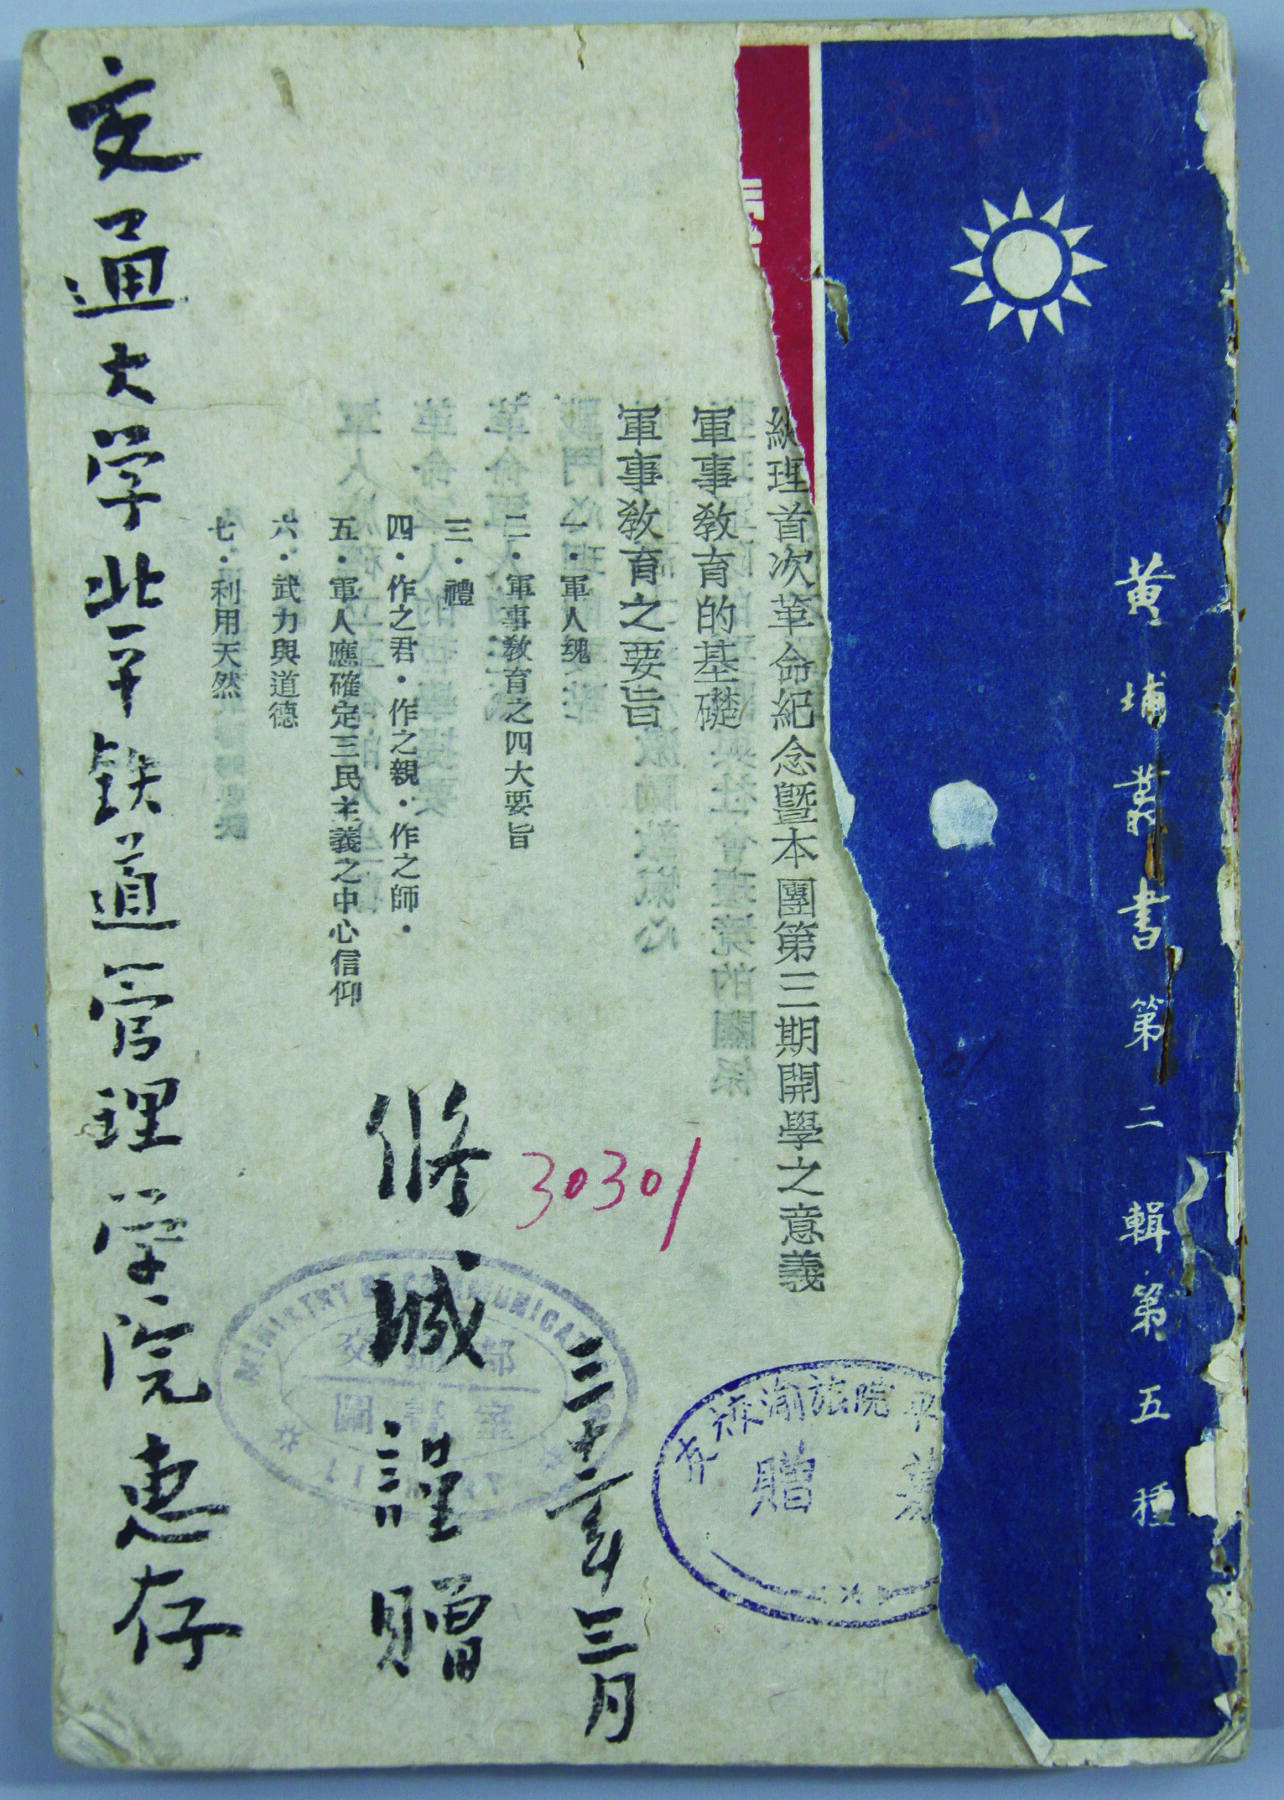 黃埔叢書 第二輯第五種
總理首次革命紀念暨本團第三期開學之意義
軍事教育的基礎
軍事教育之要旨
一・軍人魂
二・軍事教育之四大要旨
三・禮
四・作之君・作之親・作之師・
五・軍人應確定三民主義之中心信仰
六・武力與道德
七・利用天然
交通大学北平铁道管理学院惠存
脩诚謹贈
三十六年三月
30301
MINISTRY OF COMMUNICATIONS
交通部
圖書室
贈